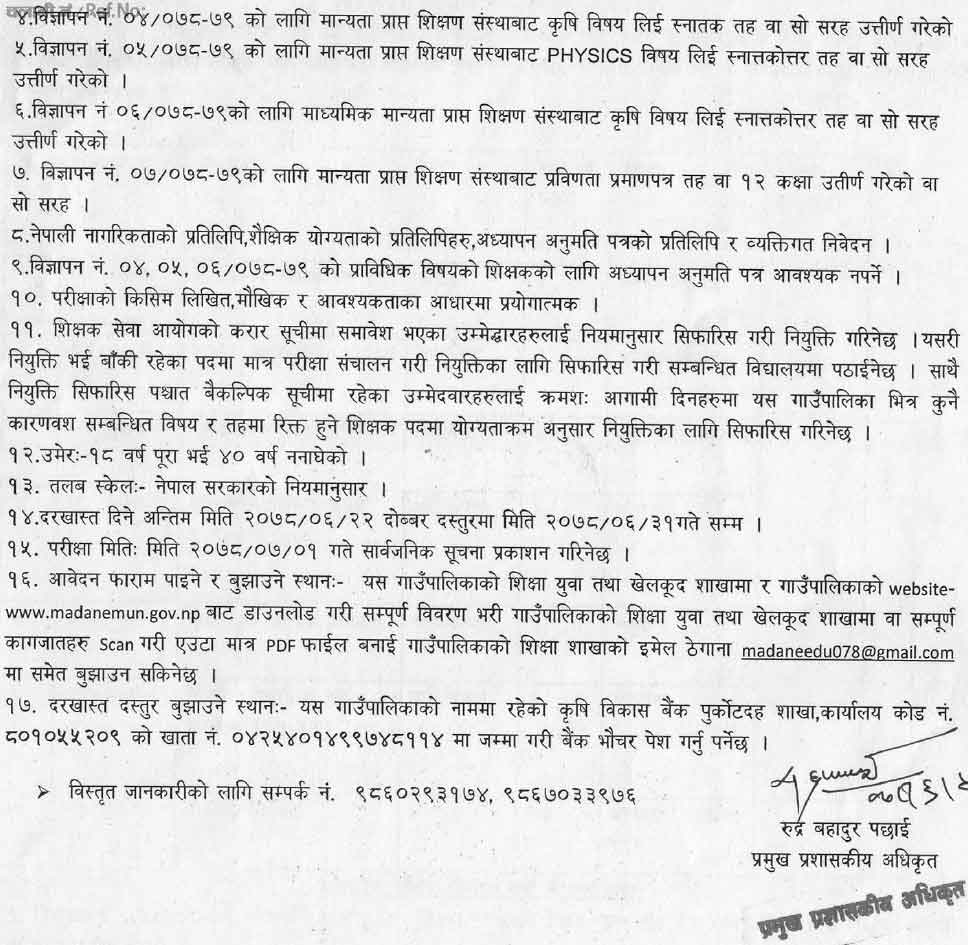 चलानी नं./Ref.No:
४.विज्ञापन नं. ०४/०७८-७९ को लागि मान्यता प्राप्त शिक्षण संस्थाबाट कृषि विषय लिई स्नातक तह वा सो सरह उत्तीर्ण गरेको
५.विज्ञापन नं. ०५/०७८-७९ को लागि मान्यता प्राप्त शिक्षण संस्थाबाट PHYSICS विषय लिई स्नात्तकोत्तर तह वा सो सरह
उत्तीर्ण गरेको ।
६.विज्ञापन नं ०६/०७८-७९को लागि माध्यमिक मान्यता प्राप्त शिक्षण संस्थाबाट कृषि विषय लिई स्नात्तकोत्तर तह वा सो सरह
उत्तीर्ण गरेको ।
७. विज्ञापन नं. ०७/०७८-७९को लागि मान्यता प्राप्त शिक्षण संस्थाबाट प्रविणता प्रमाणपत्र तह वा १२ कक्षा उतीर्ण गरेको वा
सो सरह ।
८.नेपाली नागरिकताको प्रतिलिपि,शैक्षिक योग्यताको प्रतिलिपिहरु,अध्यापन अनुमति पत्रको प्रतिलिपि र व्यक्तिगत निवेदन ।
९.विज्ञापन नं. ०४, ०५, ०६/०७८-७९ को प्राविधिक विषयको शिक्षकको लागि अध्यापन अनुमति पत्र आवश्यक नपर्ने ।
१०. परीक्षाको किसिम लिखित,मौखिक र आवश्यकताका आधारमा प्रयोगात्मक ।
११. शिक्षक सेवा आयोगको करार सूचीमा समावेश भएका उम्मेद्धारहरुलाई नियमानुसार सिफारिस गरी नियुक्ति गरिनेछ ।यसरी
नियुक्ति भई बाँकी रहेका पदमा मात्र परीक्षा संचालन गरी नियुक्तिका लागि सिफारिस गरी सम्बन्धित विद्यालयमा पठाईनेछ । साथै
नियुक्ति सिफारिस पश्चात बैकल्पिक सूचीमा रहेका उम्मेदवारहरुलाई क्रमशः आगामी दिनहरुमा यस गाउँपालिका भित्र कुनै
कारणवश सम्बन्धित विषय र तहमा रिक्त हुने शिक्षक पदमा योग्यताक्रम अनुसार नियुक्तिका लागि सिफारिस गरिनेछ ।
१२.उमेरः-१८ वर्ष पूरा भई ४० वर्ष ननाघेको ।
१३. तलब स्केलः- नेपाल सरकारको नियमानुसार ।
१४.दरखास्त दिने अन्तिम मिति २०७८/०६/२२ दोब्बर दस्तुरमा मिति २०७८/०६/३१गते सम्म ।
१५. परीक्षा मितिः मिति २०७८/०७/०१ गते सार्वजनिक सूचना प्रकाशन गरिनेछ ।
१६. आवेदन फाराम पाइने र बुझाउने स्थानः- यस गाउँपालिकाको शिक्षा युवा तथा खेलकूद शाखामा र गाउँपालिकाको website-
www.madanemun.gov.np बाट डाउनलोड गरी सम्पूर्ण विवरण भरी गाउँपालिकाको शिक्षा युवा तथा खेलकूद शाखामा वा सम्पूर्ण
कागजातहरु Scan गरी एउटा मात्र PDF फाईल बनाई गाउँपालिकाको शिक्षा शाखाको इमेल ठेगाना madaneedu078@gmail.com
मा समेत बुझाउन सकिनेछ ।
१७. दरखास्त दस्तुर बुझाउने स्थानः- यस गाउँपालिकाको नाममा रहेको कृषि विकास बैंक पुर्कोटदह शाखा,कार्यालय कोड नं.
८०१०५५२०९ को खाता नं. ०४२५४०१४९९७४८११४ मा जम्मा गरी बैंक भौचर पेश गर्नु पर्नेछ ।
➢ विस्तृत जानकारीको लागि सम्पर्क नं. ९८६०२९३१७४, ९८६७०३३९७६
रुद्र बहादुर पछाई
प्रमुख प्रशासकीय अधिकृत
प्रमुख प्रशासकीय अधिकृत